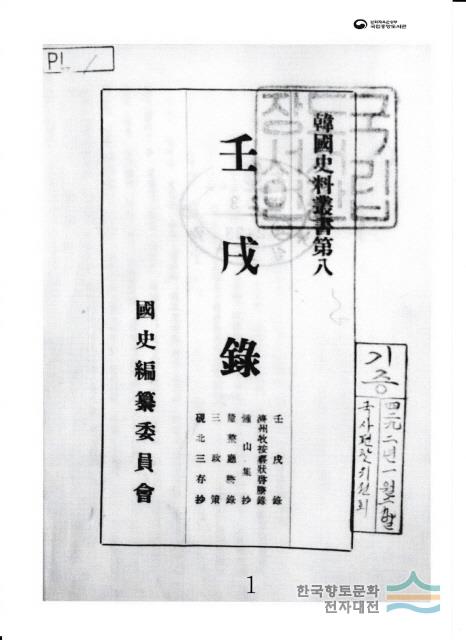 문화체육관광부
국립중앙도서관
국립
도서관
장서인
韓國史料叢書第八
壬戌錄
壬戌錄
濟州牧按覈狀啓謄錄
鍾山集抄
釐整廳謄錄
三政策
硯北三存抄
國史編纂委員會
기증
四二九二年一月
국사편찬위원회
1
한국향토문화
전자대전